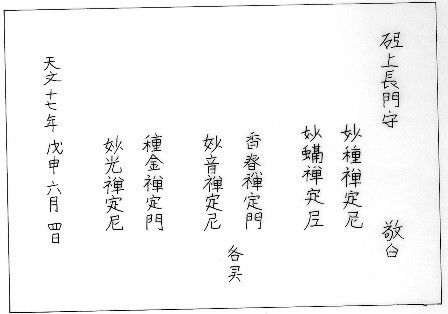 硁上長門守 敬白
妙種禅定尼
妙蟎禅定尼
香春禅定門
妙音禅定尼
各灵
種金禅定門
妙光禅定尼
天文十七年戊申六月四日